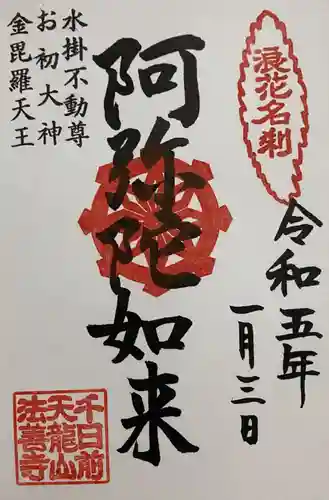 浪花名刹
令和五年
一月三日
阿弥陀如来
水掛不動尊
お初大神
金毘羅天王
千日前
天龍山
法善寺